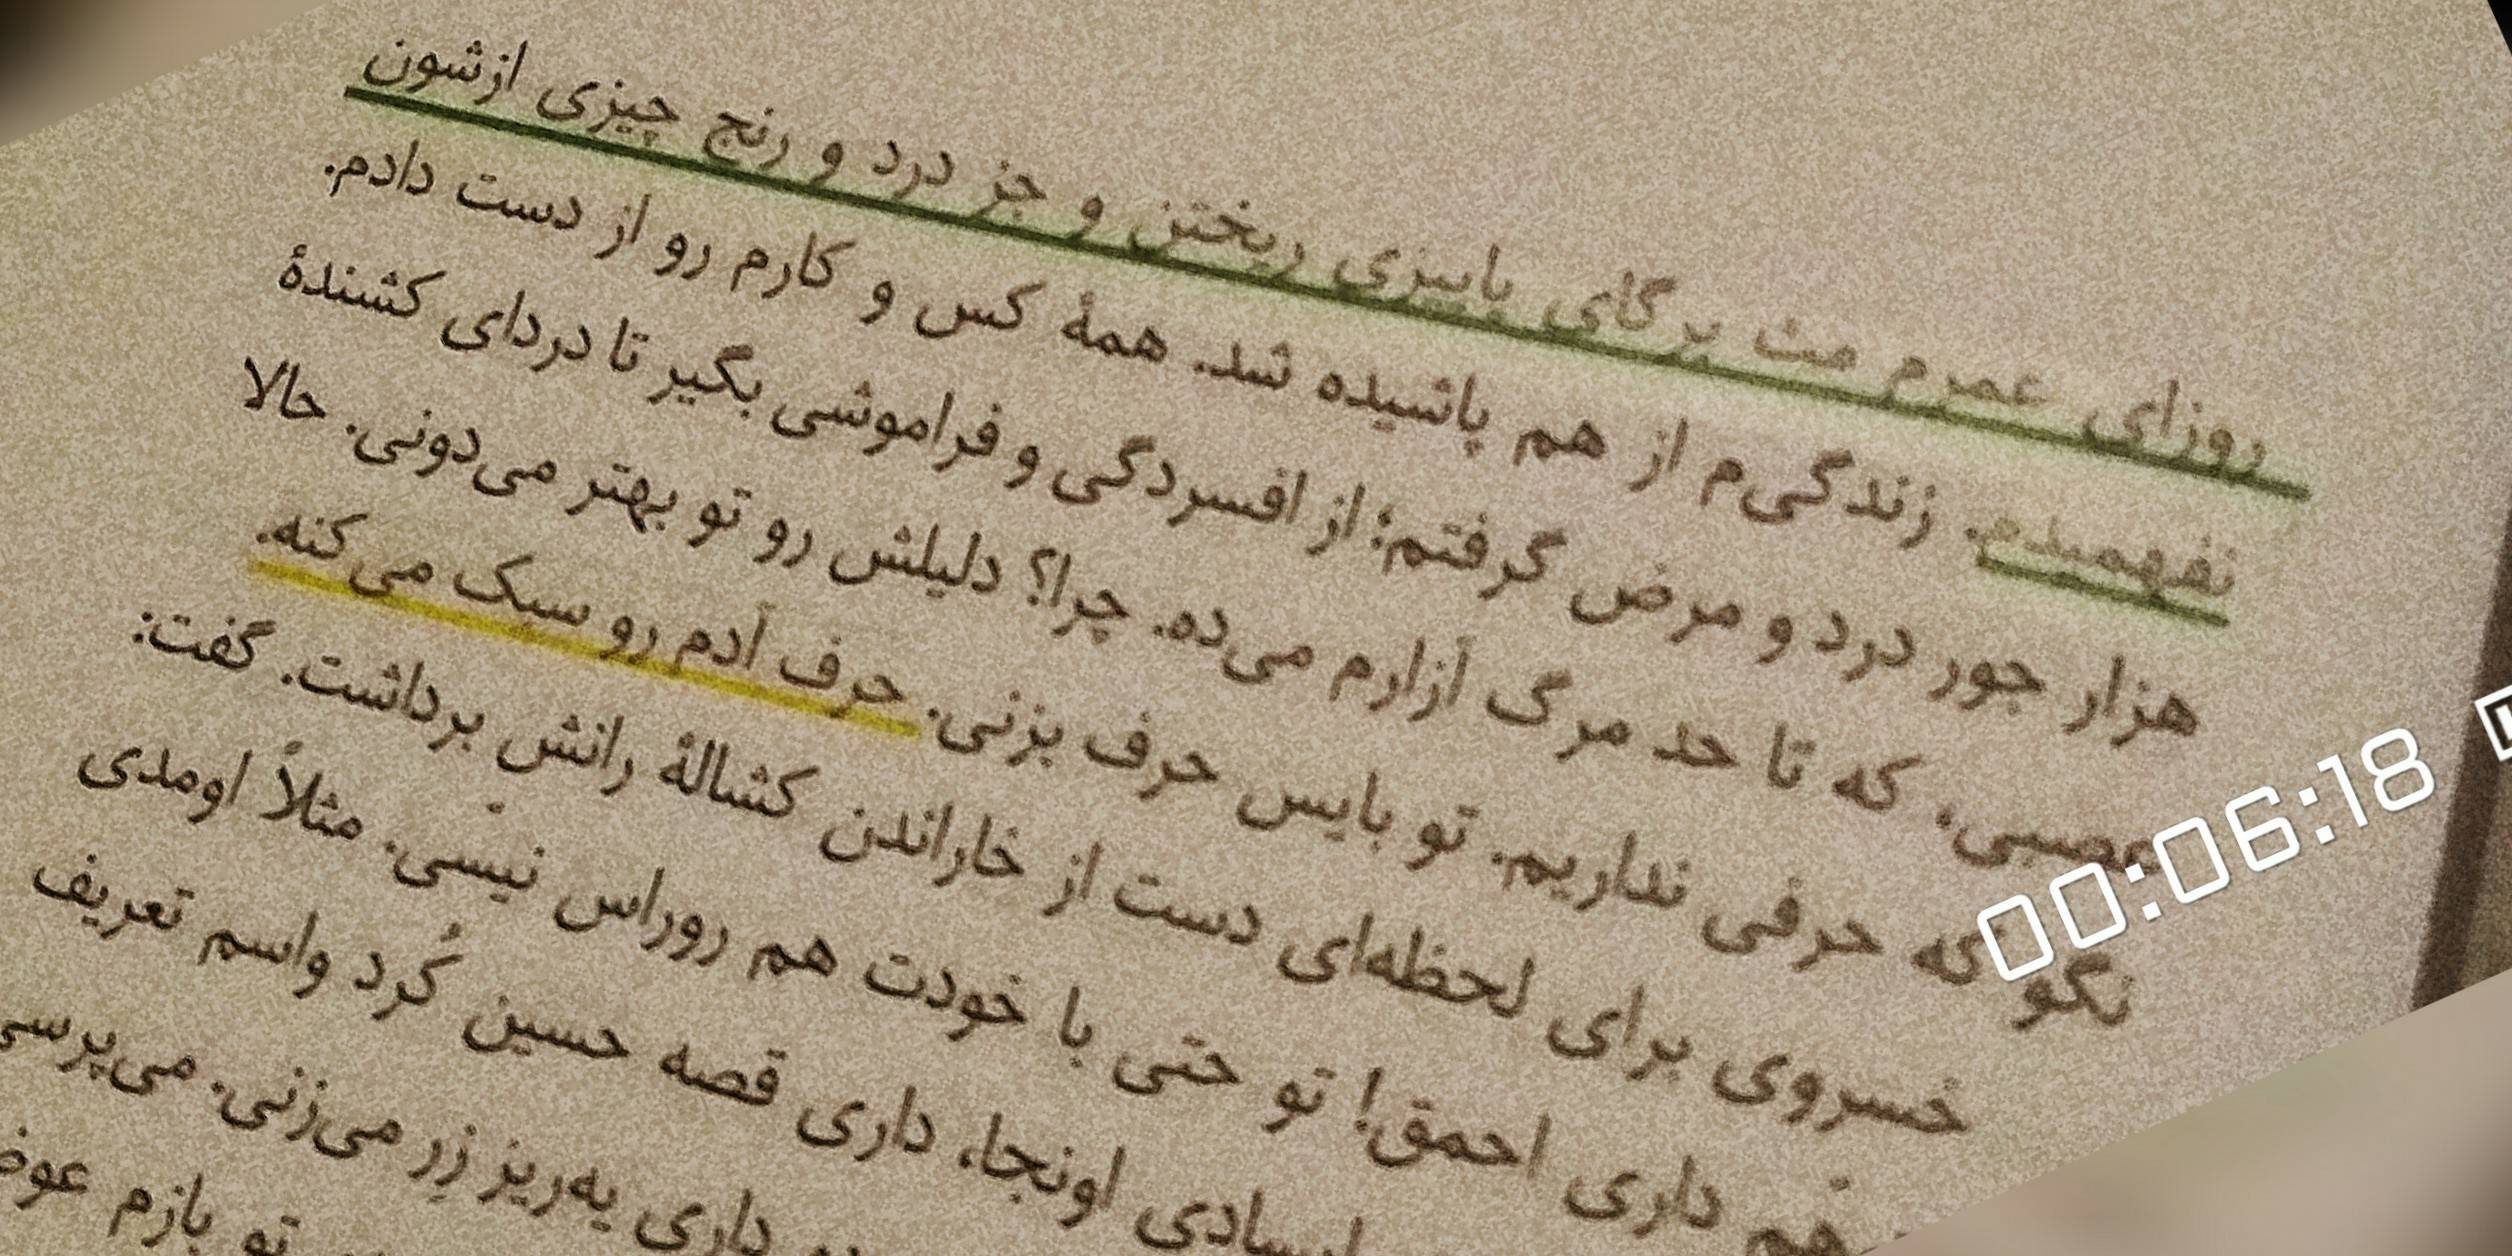 روزای عمرم مث برگای پاییزی ریختن و جز درد و رنج چیزی ازشون
نفهمیدم. زندگی‌م از هم پاشیده شد. همهٔ کس و کارم رو از دست دادم.
هزار جور درد و مرض گرفتم؛ از افسردگی و فراموشی بگیر تا دردای کشندهٔ
عصبی، که تا حد مرگ آزارم می‌ده. چرا؟ دلیلش رو تو بهتر می‌دونی. حالا
نگو که حرفی نداریم. تو بایس حرف بزنی. حرف آدم رو سبک می‌کنه.
خسروی برای لحظه‌ای دست از خاراندن کشالهٔ رانش برداشت. گفت:
هم داری احمق! تو حتی با خودت هم روراس نیسّی. مثلاً اومدی
اونجا، داری قصه حسین کُرد واسم تعریف
داری یه‌ریز زِر می‌زنی. می‌پرسی
تو بازم
00:06:18